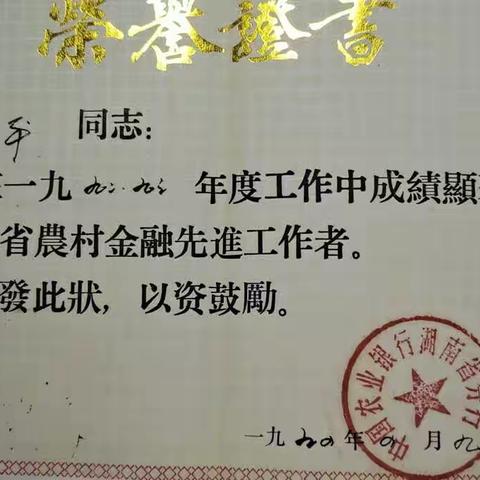 榮譽證書
平 同志:
一九九二·九三 年度工作中成績顯
省農村金融先進工作者。
發此狀,以资鼓勵。
中国农业银行湖南省分行
一九九四年四月九